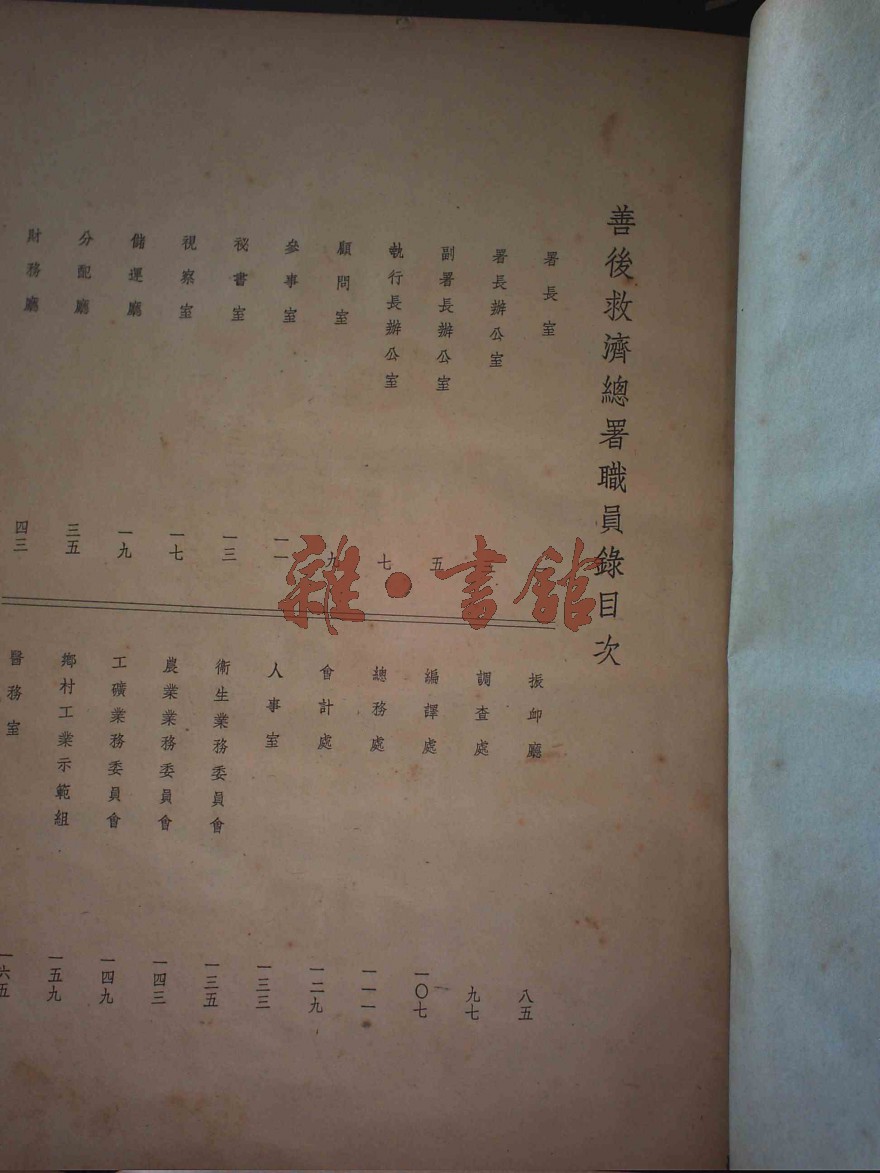 善後救濟總署職員錄目次
署長室
署長辦公室
副署長辦公室 五
執行長辦公室 七
顧問室 九
參事室 一一
秘書室 一三
視察室 一七
儲運廳 一九
分配廳 三五
財務廳 四三
振卹廳 八五
調查處 九七
編譯處 一〇七
總務處 一一一
會計處 一二九
人事室 一三三
衛生業務委員會 一三五
農業業務委員會 一四三
工礦業務委員會 一四九
鄉村工業示範組 一五九
醫務室 一六五
雜·書館